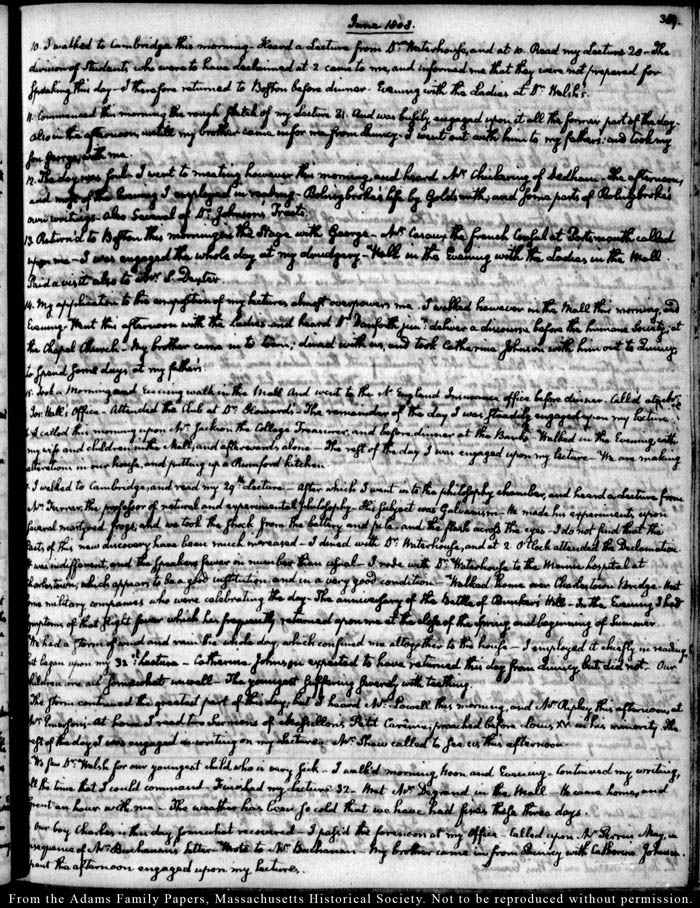 June 1808.
389.
10. I walked to Cambridge this morning – Heard a Lecture from Dr. Waterhouse, and at 10. Read my Lecture 28 – The
division of Students who were to have declaimed at 2 came to me, and informed me that they were not prepared for
speaking this day – I therefore returned to Boston before dinner. Evening with the Ladies at Dr. Welsh's.
11. Commenced this morning the rough sketch of my Lecture 31. And was busily engaged upon it all the former part of the day
also in the afternoon, untill my brother came in for me from Quincy. I went out with him to my father's, and took my
son George, with me.
12. The day was I went to meeting however this morning, and heard Mr. Chickering of Dedham. The afternoon,
and most of the Evening I employed in reading – Bolingbroke's life by Goldsmith, and some part of Bolingbroke's
own writings. Also Several of Dr. Johnson's Tracts.
13. Return'd to Boston this morning in the Stage with George – Mr. the French Consul at Portsmouth called
upon me – I was engaged the whole day at my drudgery – Walk in the Evening with the Ladies in the Mall
Paid a visit also to Mr. S. Dexter
14. My application to the composition of my lectures almost overpowers me. I walked however in the Mall this morning, and
Evening. Went this afternoon with the Ladies and heard Dr. Danforth junr. deliver a discourse before the humane Society, at
the Chapel Church. My brother came in to town; dined with us, and took Catherine Johnson with him out to Quincy
to spend some days at my father's.
15. Took a Morning and Evening walk in the Mall And went to the N. England Insurance office before dinner. Called at
Jos. Hall's Office – Attended the Club at Dr. Howard's – The remainder of the day I was steadily engaged upon my lecture.
I called this morning upon Mr. Jackson the College Treasurer, and before dinner at the Bank. Walked in the Evening with
my wife and children in the Mall, and afterwards alone – The rest of the day I was engaged upon my lecture – We are making
alterations in our house, and putting up a Rumford kitchen.
I walked to Cambridge, and read my 29th. lecture – After which I went in to the philosophy chamber, and heard a lecture from
Mr. Farrar, the professor of natural and experimental philosophy – His subject was Galvanism – He made his experiments upon
several martyred frogs; and we took the shock from the battery and pile – and the flash across the eyes – I do not find that the
facts of this new discovery have been much increased – I dined with Dr. Waterhouse, and at 2 O'clock attended the Declamation
was indifferent, and the speakers fewer in number than usual – I rode with Dr. Waterhouse to the Marine hospital at
Charlestown, which appears to be a good institution, and in a very good condition – Walked home over Charlestown bridge – Met
some military companies who were celebrating the day – The anniversary of the Battle of Bunker's Hill – In the Evening I had
symptoms of that slight fever which has frequently returned upon me at the close of the Spring and beginning of Summer.
We had a storm of wind and rain the whole day which confined me altogether to the house – I employed it chiefly in reading
began upon my 32d. lecture – Catherine Johnson expected to have returned this day from Quincy but did not – Our
children are all somewhat unwell – The youngest suffering severely with teething.
The storm continued the greatest part of this day; but I heard Mr. Lowell this morning, and Mr. Ripley this afternoon, at
Mr. Emerson's. At home I read two Sermons of Massillon's Petit Carême; preached before Louis XV. in his minority. The
rest of the day I was engaged in writing on my lecture. Mr. Shaw called to see us this afternoon
We saw Dr. Welsh for our youngest child who is very sick – I walk'd morning, Noon and Evening – Continued my writing,
all the time that I could command – Finished my lecture 32 – Met Mr. Degrand in the Mall – He came home, and
spent an hour with me – The weather has been so cold that we have had fires these three days.
Our boy Charles is this day somewhat recovered – I pass'd the forenoon at my Office – Called upon Mr. Perrin May, in
consequence of Mr. Buchanan's letter – Wrote to Mr. Buchanan – My brother came in from Quincy with Catherine Johnson.
spent the afternoon engaged upon my lectures.
From the Adams Family Papers, Massachusetts Historical Society. Not to be reproduced without permission.